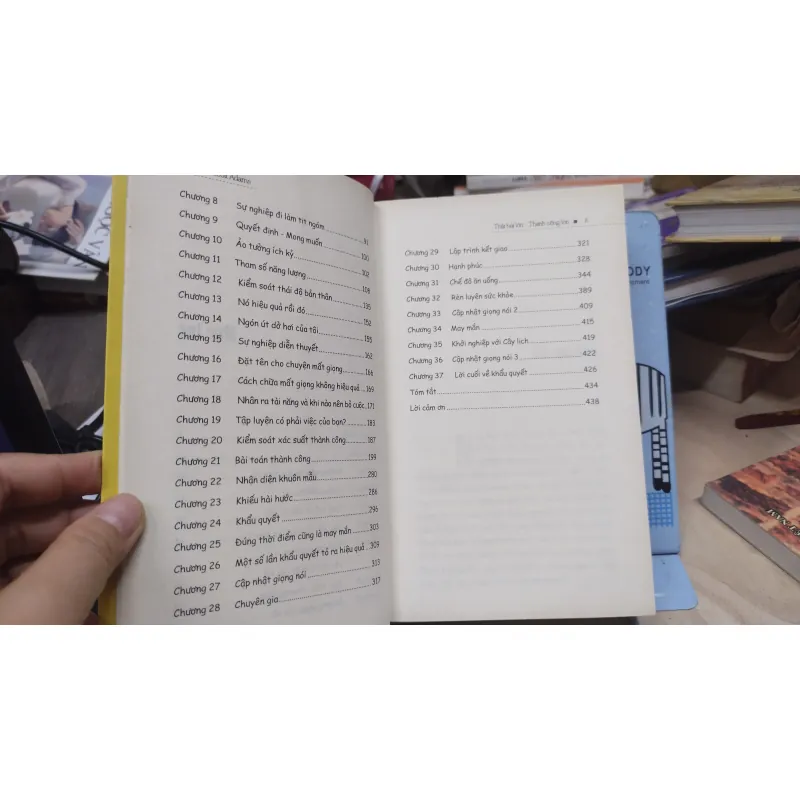 Adams
Chương 8 Sự nghiệp đi làm tịt ngóm 91
Chương 9 Quyết định - Mong muốn 100
Chương 10 Ảo tưởng ích kỷ 102
Chương 11 Tham số năng lượng 108
Chương 12 Kiểm soát thái độ bản thân 135
Chương 13 Nó hiệu quả rồi đó 152
Chương 14 Ngón út dở hơi của tôi 155
Chương 15 Sự nghiệp diễn thuyết 162
Chương 16 Đặt tên cho chuyện mất giọng 166
Chương 17 Cách chữa mất giọng không hiệu quả 169
Chương 18 Nhận ra tài năng và khi nào nên bỏ cuộc 171
Chương 19 Tập luyện có phải việc của bạn? 183
Chương 20 Kiểm soát xác suất thành công 187
Chương 21 Bài toán thành công 199
Chương 22 Nhận diện khuôn mẫu 280
Chương 23 Khiếu hài hước 286
Chương 24 Khẩu quyết 296
Chương 25 Đúng thời điểm cũng là may mắn 303
Chương 26 Một số lần khẩu quyết tỏ ra hiệu quả 309
Chương 27 Cập nhật giọng nói 313
Chương 28 Chuyên gia 317
Chương 29 Lập trình kết giao 321
Chương 30 Hạnh phúc 328
Chương 31 Chế độ ăn uống 344
Chương 32 Rèn luyện sức khỏe 389
Chương 33 Cập nhật giọng nói 2 409
Chương 34 May mắn 415
Chương 35 Khởi nghiệp với Cây lịch 419
Chương 36 Cập nhật giọng nói 3 422
Chương 37 Lời cuối về khẩu quyết 426
Tóm tắt 434
Lời cảm ơn 438